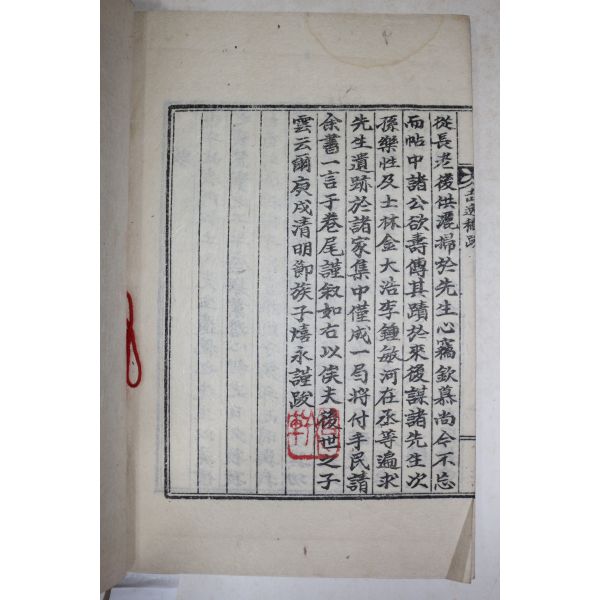 從長老後供灑掃於先生心竊欽慕尚今不忘
而帖中諸公欲壽傳其蹟於來後謀諸先生次
孫樂性及士林金大浩李鍾敏河在丞等遍求
先生遺跡於諸家集中僅成一局將付手民請
余書一言于卷尾謹叙如右以俟夫後世之子
雲云爾庚戌清明節族子熺永謹跋
軒